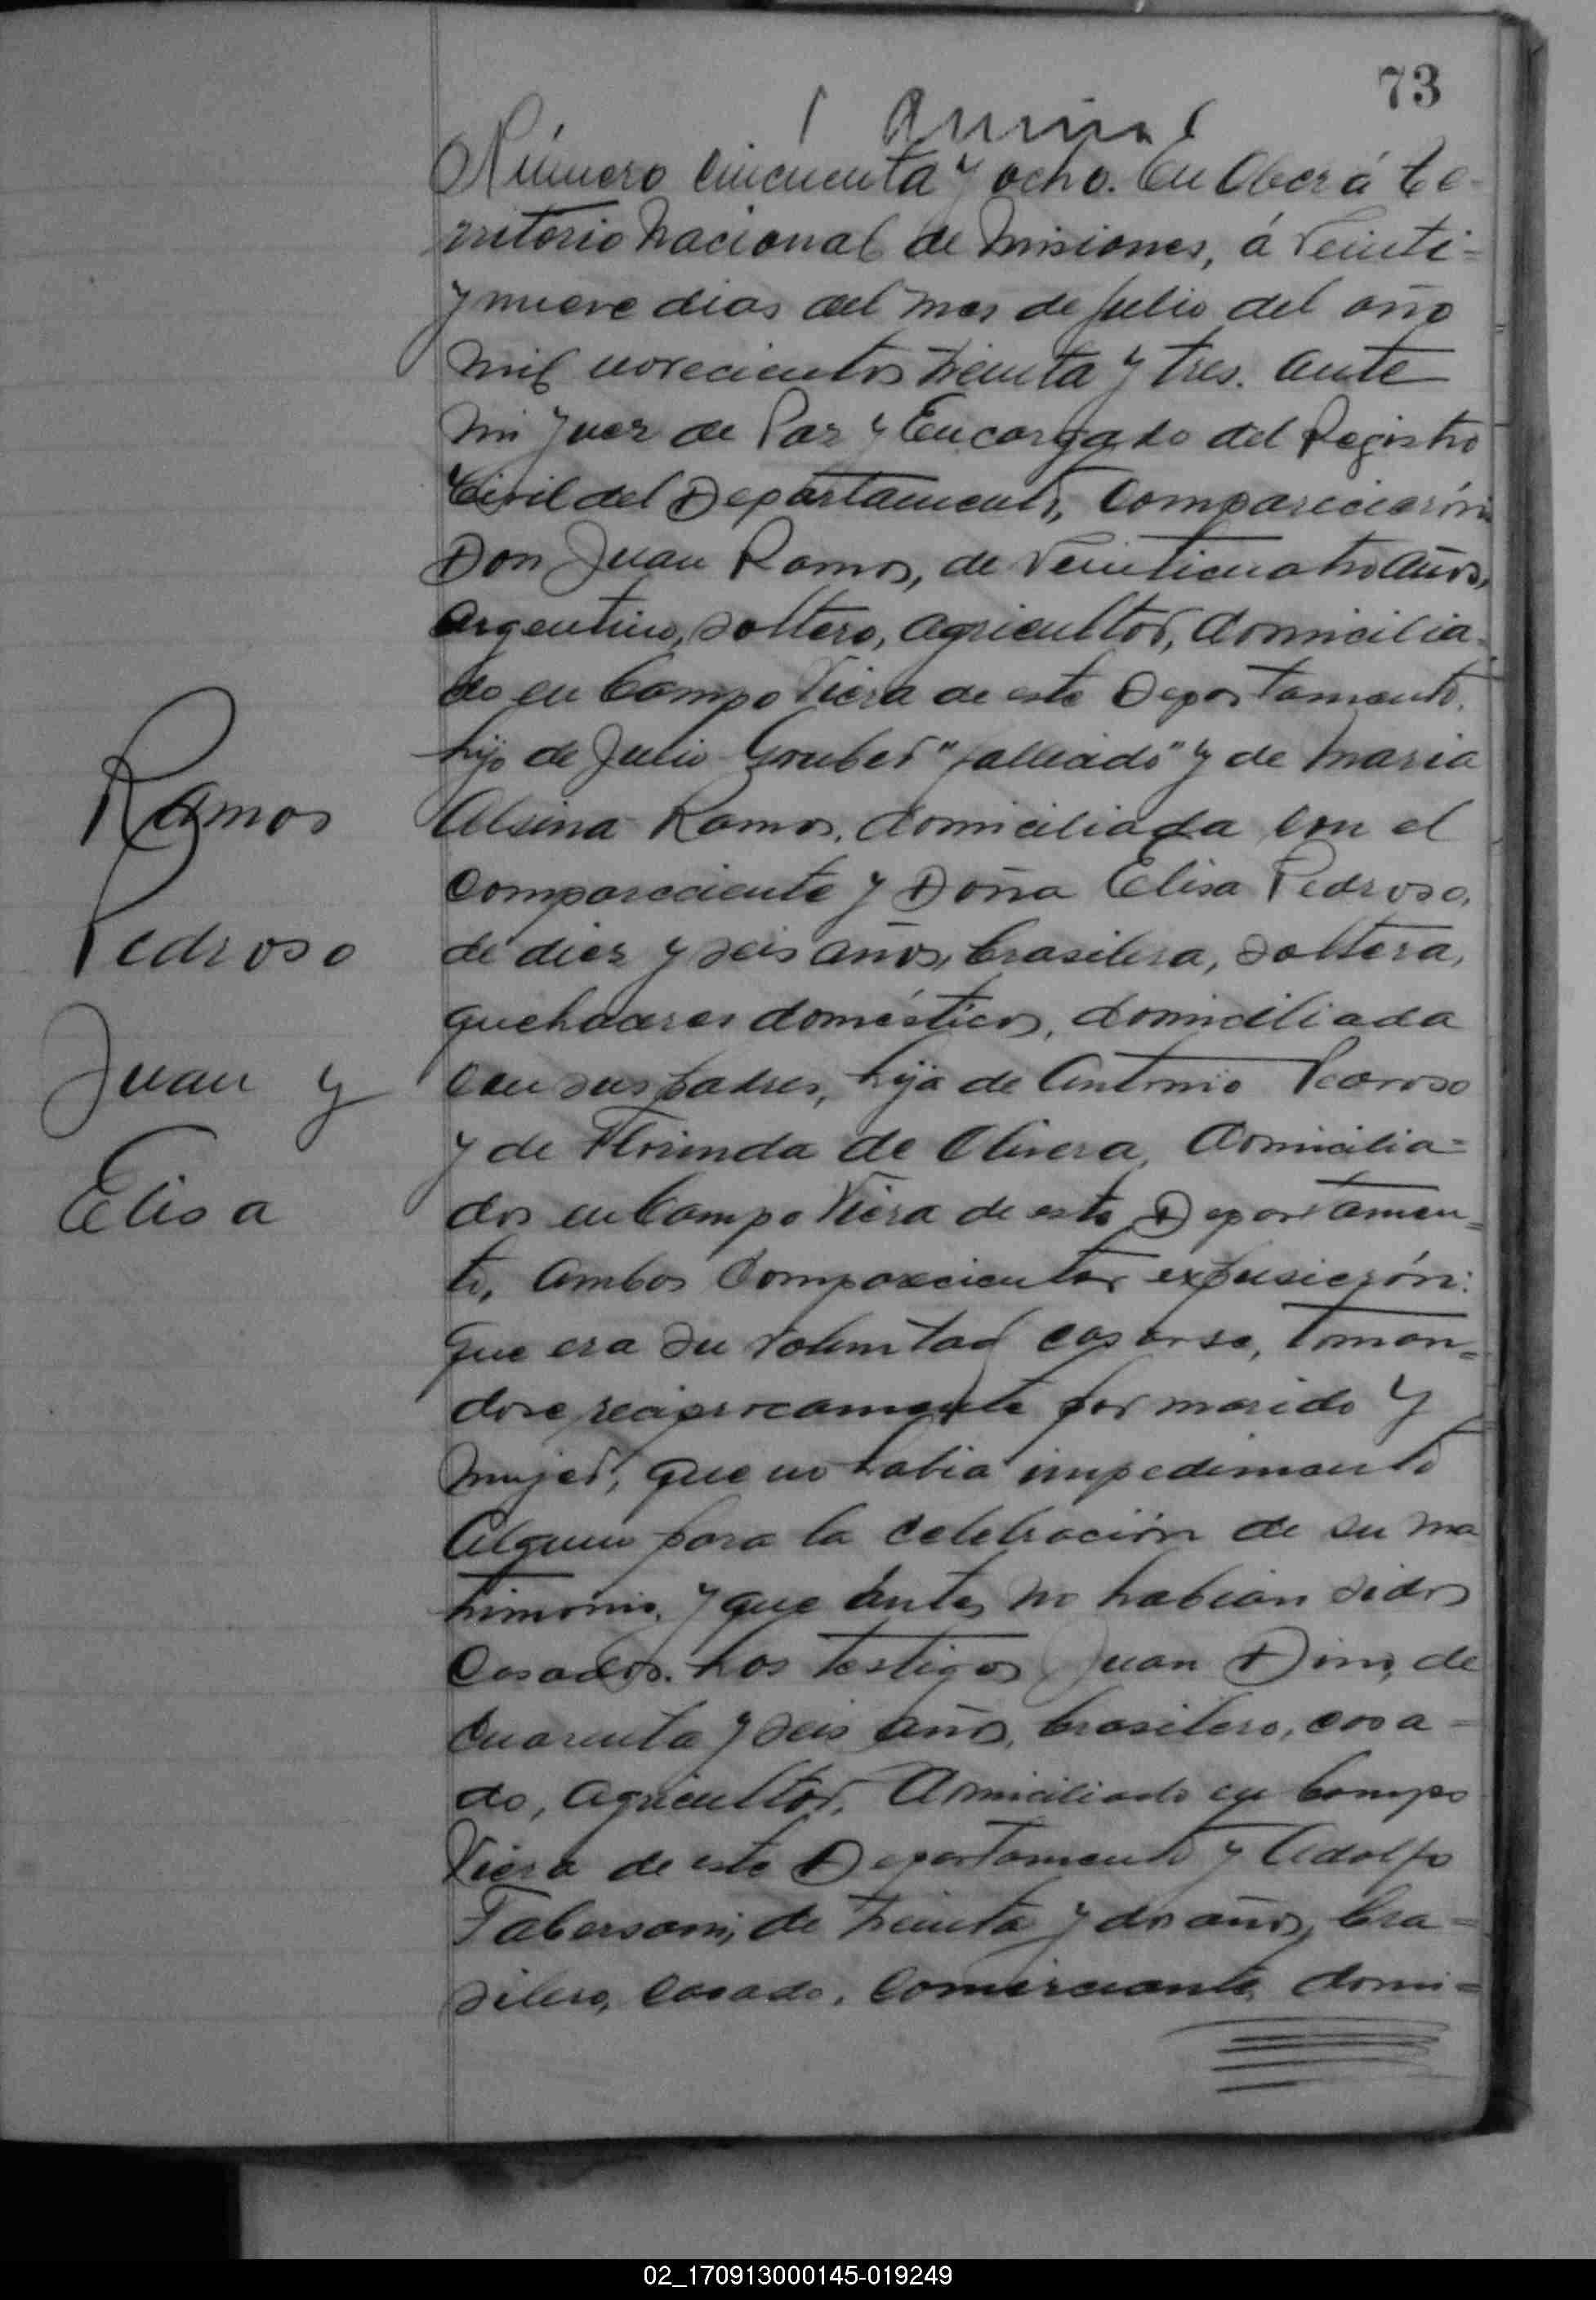 73
Número cincuenta y ocho. En Oberá te-
rritorio Nacional de Misiones, á veinti-
y nueve dias del mes de Julio del año
mil novecientos treinta y tres. ante
mi Juez de Paz y Encargado del Registro
Civil del Departamento, Comparecierón:
Don Juan Ramos, de veinticuatro años,
argentino, soltero, agricultor, domicilia-
do en Campo Viera de este Departamento,
hijo de Julio Gruber "fallecido" y de Maria
Ramos, domiciliada con el
Compareciente y Doña Elisa Pedroso,
de diez y seis años, brasilera, soltera,
quehaceres domésticos, domiciliada
con sus padres, hija de Antonio Pedroso
y de Florinda de Olivera, domicilia=
dos en Campo Viera de este Departamen=
to, Ambos Comparecientes expusierón:
que era su voluntad casarse, toman=
dose reciprocamente por marido y
mujer, que no habia impedimento
Alguno para la celebración de su ma
trimonio, y que antes no habian sidos
Casados. Los testigos Juan de
cuarenta y seis años, brasilero, casa=
do, agricultor, domiciliado en Campo
Viera de este Departamento y Adolfo
de treinta y dos años, bra=
silero, casado, comerciante, domi=
Ramos
Pedroso
Juan y
Elisa
02_170913000145-019249